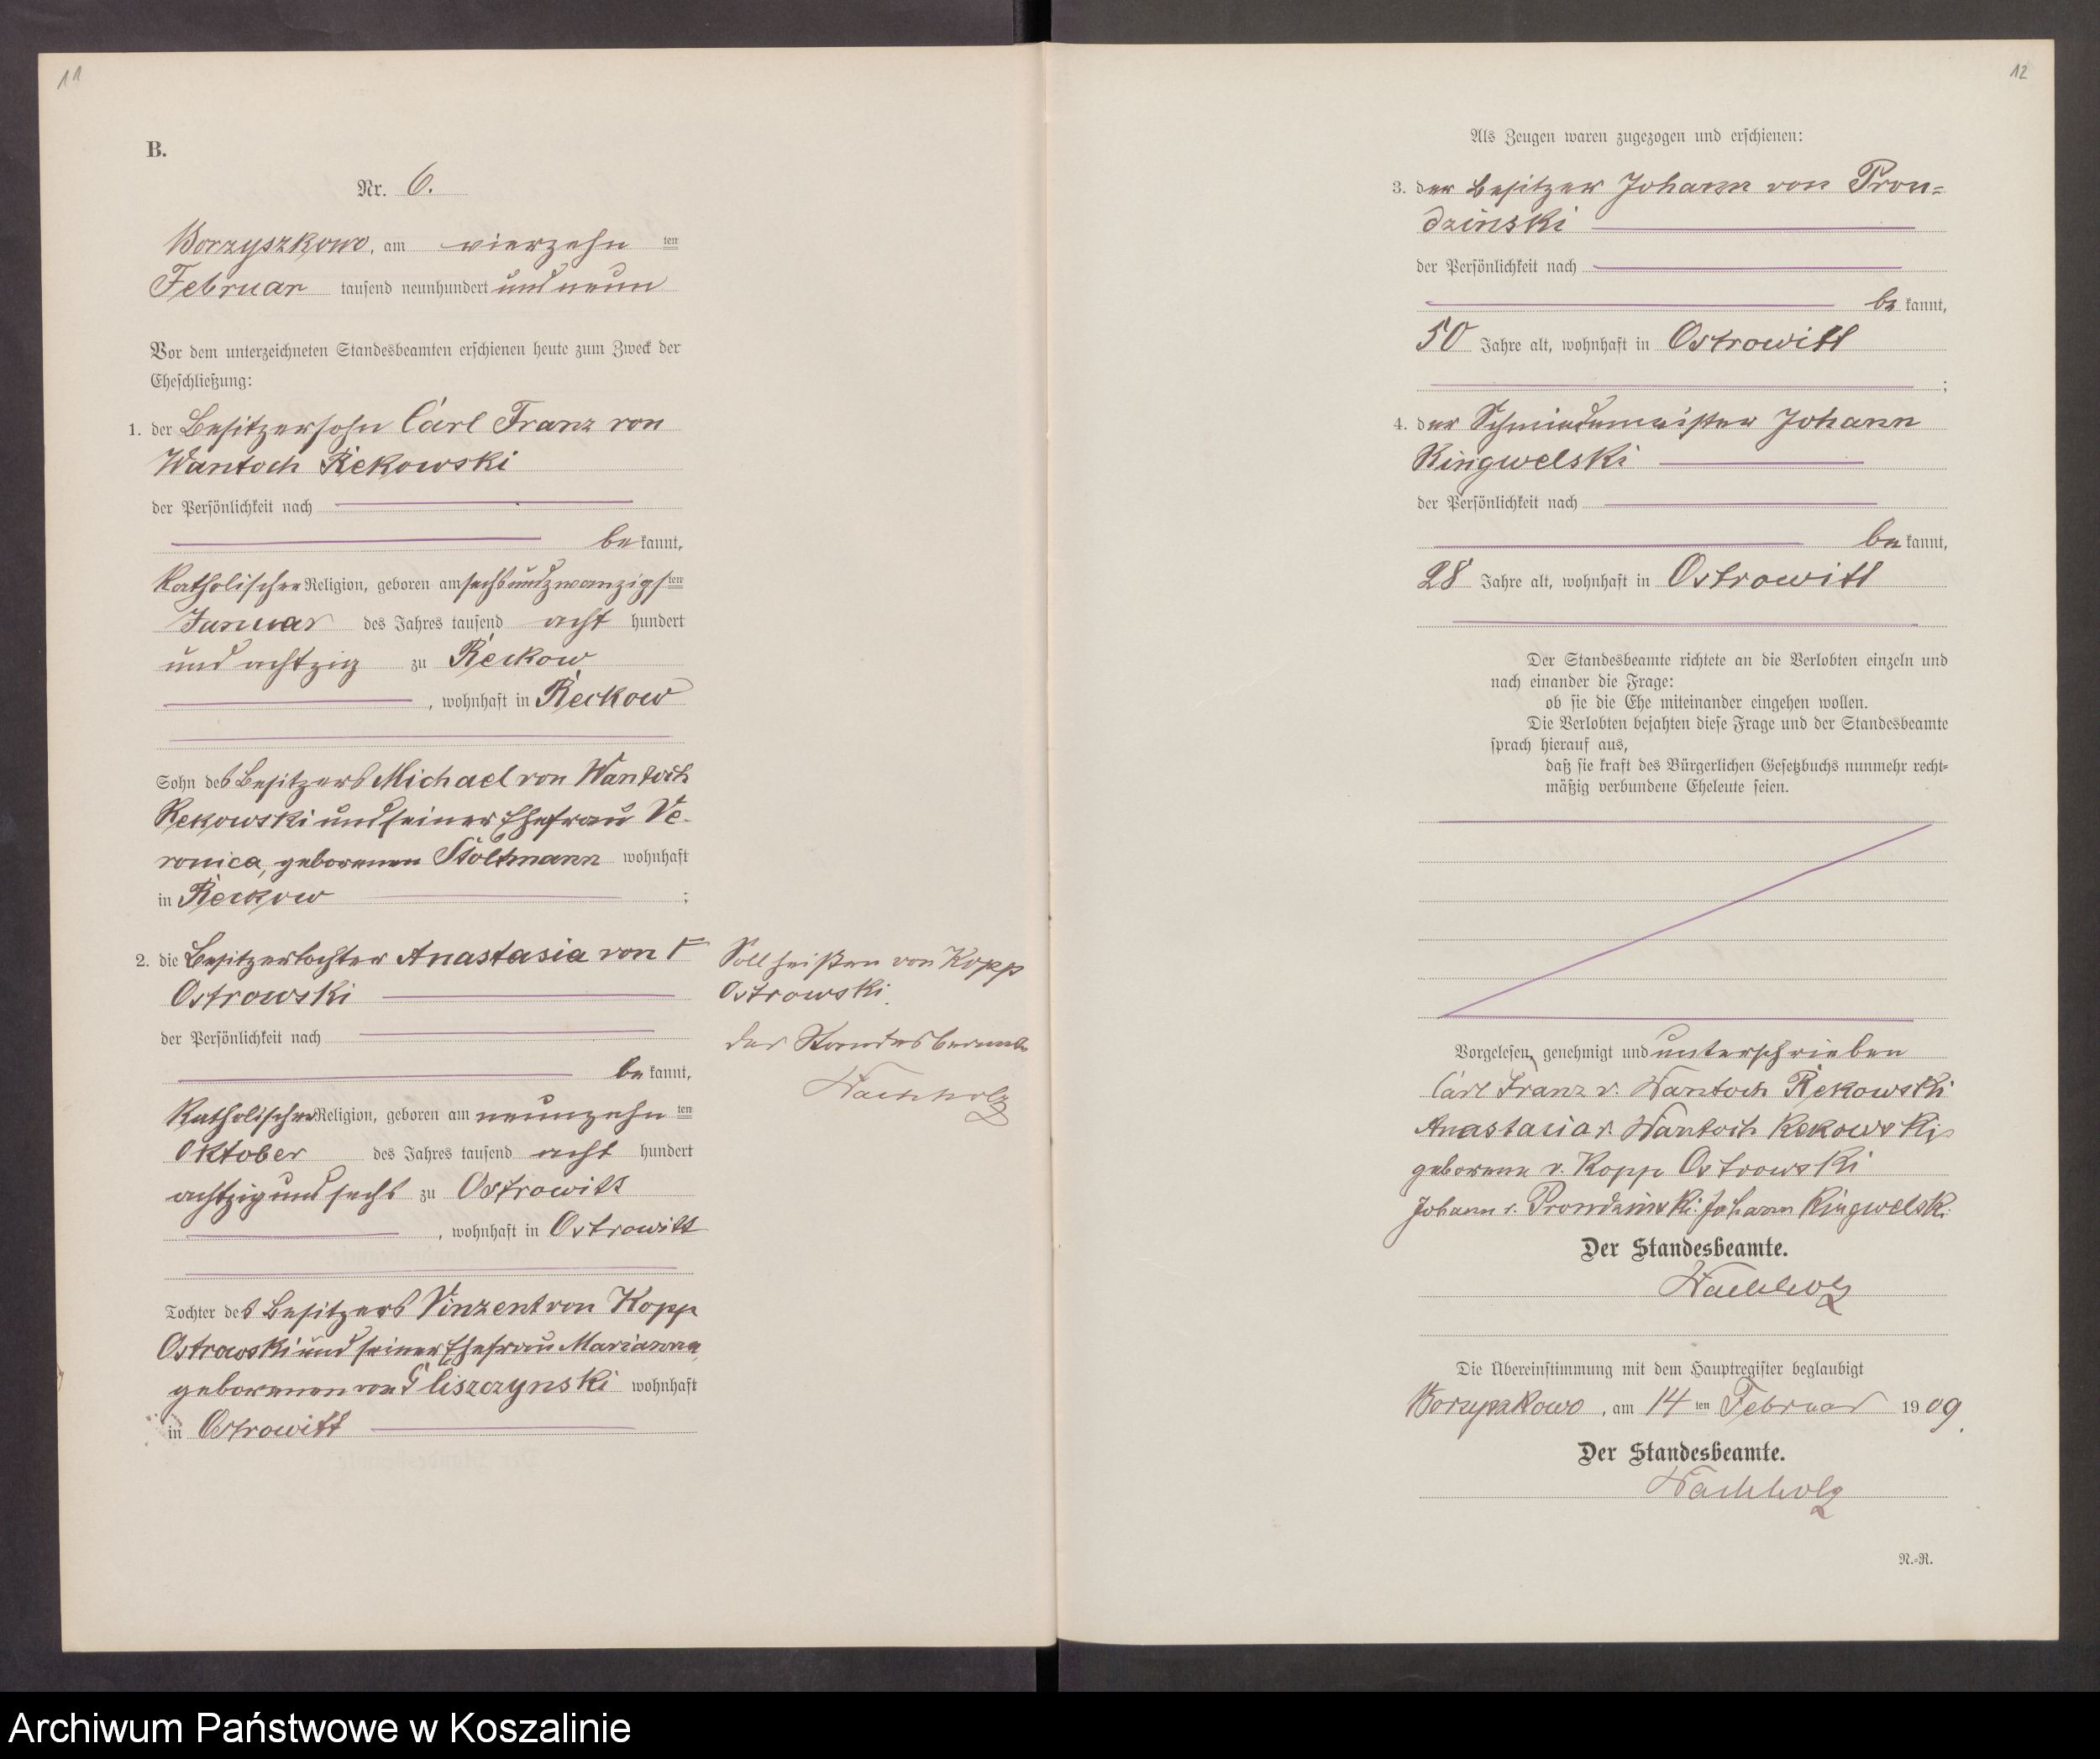 11
B.
Nr. 6.
Borzyszkowo, am vierzehn ten
Februar tausend neunhundert und neun
Vor dem unterzeichneten Standesbeamten erschienen heute zum Zweck der
Eheschließung:
1. der Besitzersohn Carl Franz von
Wantoch Rekowski
der Persönlichkeit nach
be kannt,
katholischer Religion, geboren am sechsundzwanzigsten
Januar des Jahres tausend acht hundert
und achtzig zu Reckow
, wohnhaft in Reckow
Sohn des Besitzers Michael von Wantoch
Rekowski und seiner Ehefrau Ve-
ronica, geborenen Stoltmann wohnhaft
in Reckow ;
2. die Besitzertochter Anastasia von Γ
Ostrowski
der Persönlichkeit nach
be kannt,
katholischer Religion, geboren am neunzehn ten
Oktober des Jahres tausend acht hundert
achtzig und sechs zu Ostrowitt
, wohnhaft in Ostrowitt
Tochter des Besitzers Vinzent von Kopp
Ostrowski und seiner Ehefrau Marianna
geborenen von Gliszczynski wohnhaft
in Ostrowitt
Γ Soll heißen von Kopp
Ostrowski.
Der Standesbeamte
Wachholz
12
Als Zeugen waren zugezogen und erschienen:
3. der Besitzer Johann von Pron=
dzinski
der Persönlichkeit nach
be kannt,
50 Jahre alt, wohnhaft in Ostrowitt
;
4. der Schmiedemeister Johann
Ringwelski
der Persönlichkeit nach
be kannt,
28 Jahre alt, wohnhaft in Ostrowitt
Der Standesbeamte richtete an die Verlobten einzeln und
nach einander die Frage:
ob sie die Ehe miteinander eingehen wollen.
Die Verlobten bejahten diese Frage und der Standesbeamte
sprach hierauf aus,
daß sie kraft des Bürgerlichen Gesetzbuchs nunmehr recht=
mäßig verbundene Eheleute seien.
Vorgelesen, genehmigt und unterschrieben
Carl Franz v. Wantoch Rekowski
Anastasia v. Wantoch Rekowski
geborene v. Kopp Ostrowski
Johann v. Prondzinski. Johann Ringwelski.
Der Standesbeamte.
Wachholz
Die Übereinstimmung mit dem Hauptregister beglaubigt
Borzyszkowo, am 14 ten Februar 1909.
Der Standesbeamte.
Wachholz
N.=R.
Archiwum Państwowe w Koszalinie